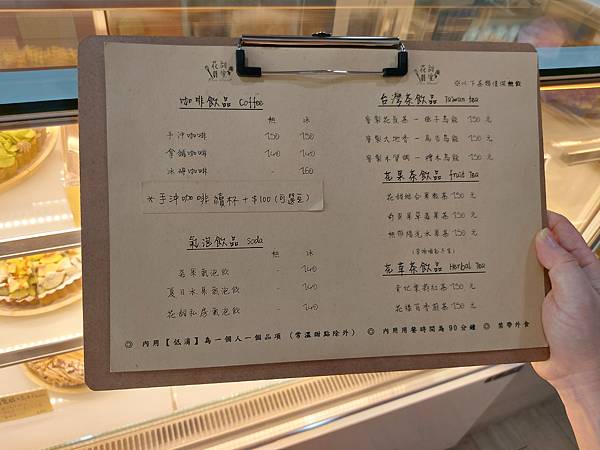 花甜囍室
花甜囍室
※以下茶類僅供熱飲
咖啡飲品 Coffee
熱 冰
手沖咖啡 150 150
掌舖咖啡 140 140
冰磚咖啡 - 160
*手沖咖啡續杯+$100(可選豆)
氣泡飲品 soda
熱 冰
花果氣泡飲 - 140
夏日水果氣泡飲 - 140
花甜私房氣泡飲 - 140
台灣茶飲品 Taiwan tea
窖製花氣甚-梔子烏龍 150 元
窖製大地香-烏香烏龍 150 元
窖製木質調-檜木烏龍 150 元
花果茶飲品 fruit Tea
花甜綜合果粒茶 150 元
奇異果草莓果茶 150 元
熱帶陽光水果茶 150 元
花草茶飲品 Herbal Tea
童记茉莉紅茶 150 元
花樣百香煎茶 150 元
◎ 內用【低消】為一個人一個品項 (常溫甜點除外) ◎ 內用用餐時間為 90 分鐘 ◎ 禁帶外食